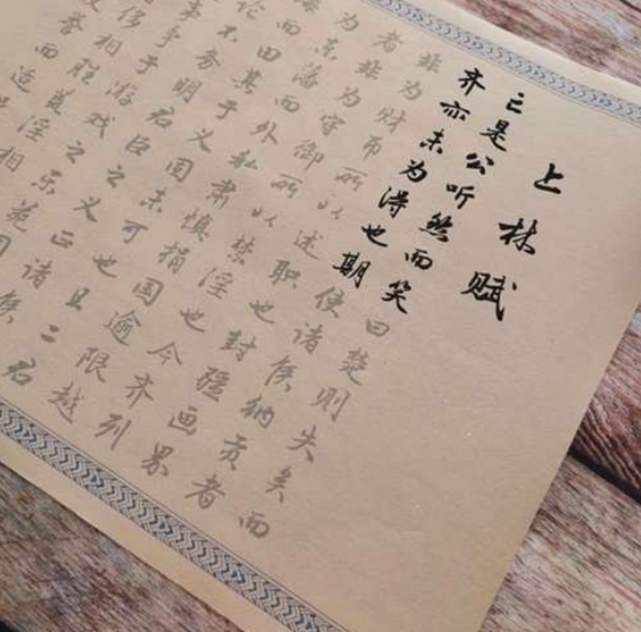 上林赋
亡是公听然而笑曰楚则失矣而
齐亦未为得也期使诸侯纳贡者
非为财币所以述职也封疆画界
者非为守御所以禁淫也今齐列
为东藩而外私肃慎捐国逾限越
海而田其于义固未可也且二君
论不务明君臣之义正诸侯
事争于游戏之乐苑囿
侈相胜荒淫相
誉而